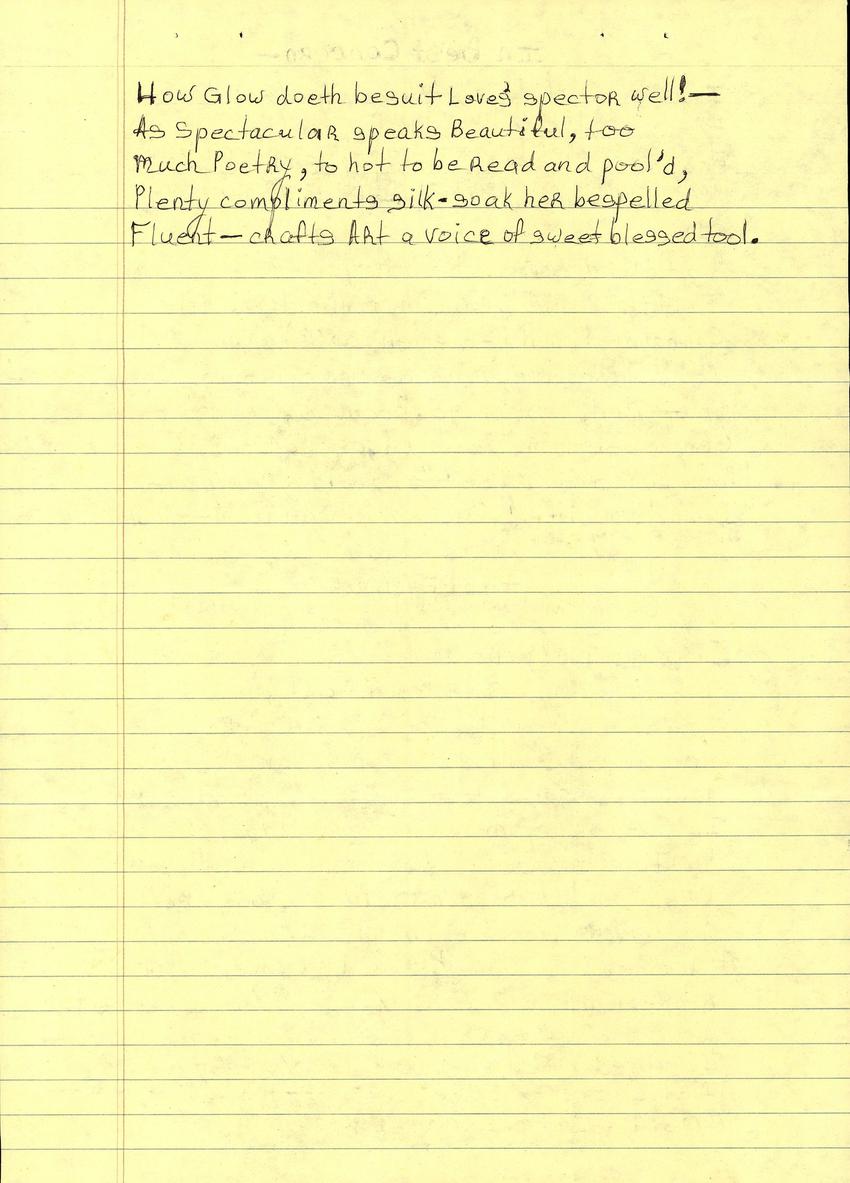 How Glow doeth besuit Loves spector well!—
As Spectacular speaks Beautiful, too
Much Poetry, to hot to be Read and pool'd,
Plenty compliments silk-soak her bespelled
Fluent—chafts Art a voice of sweet blessed tool.